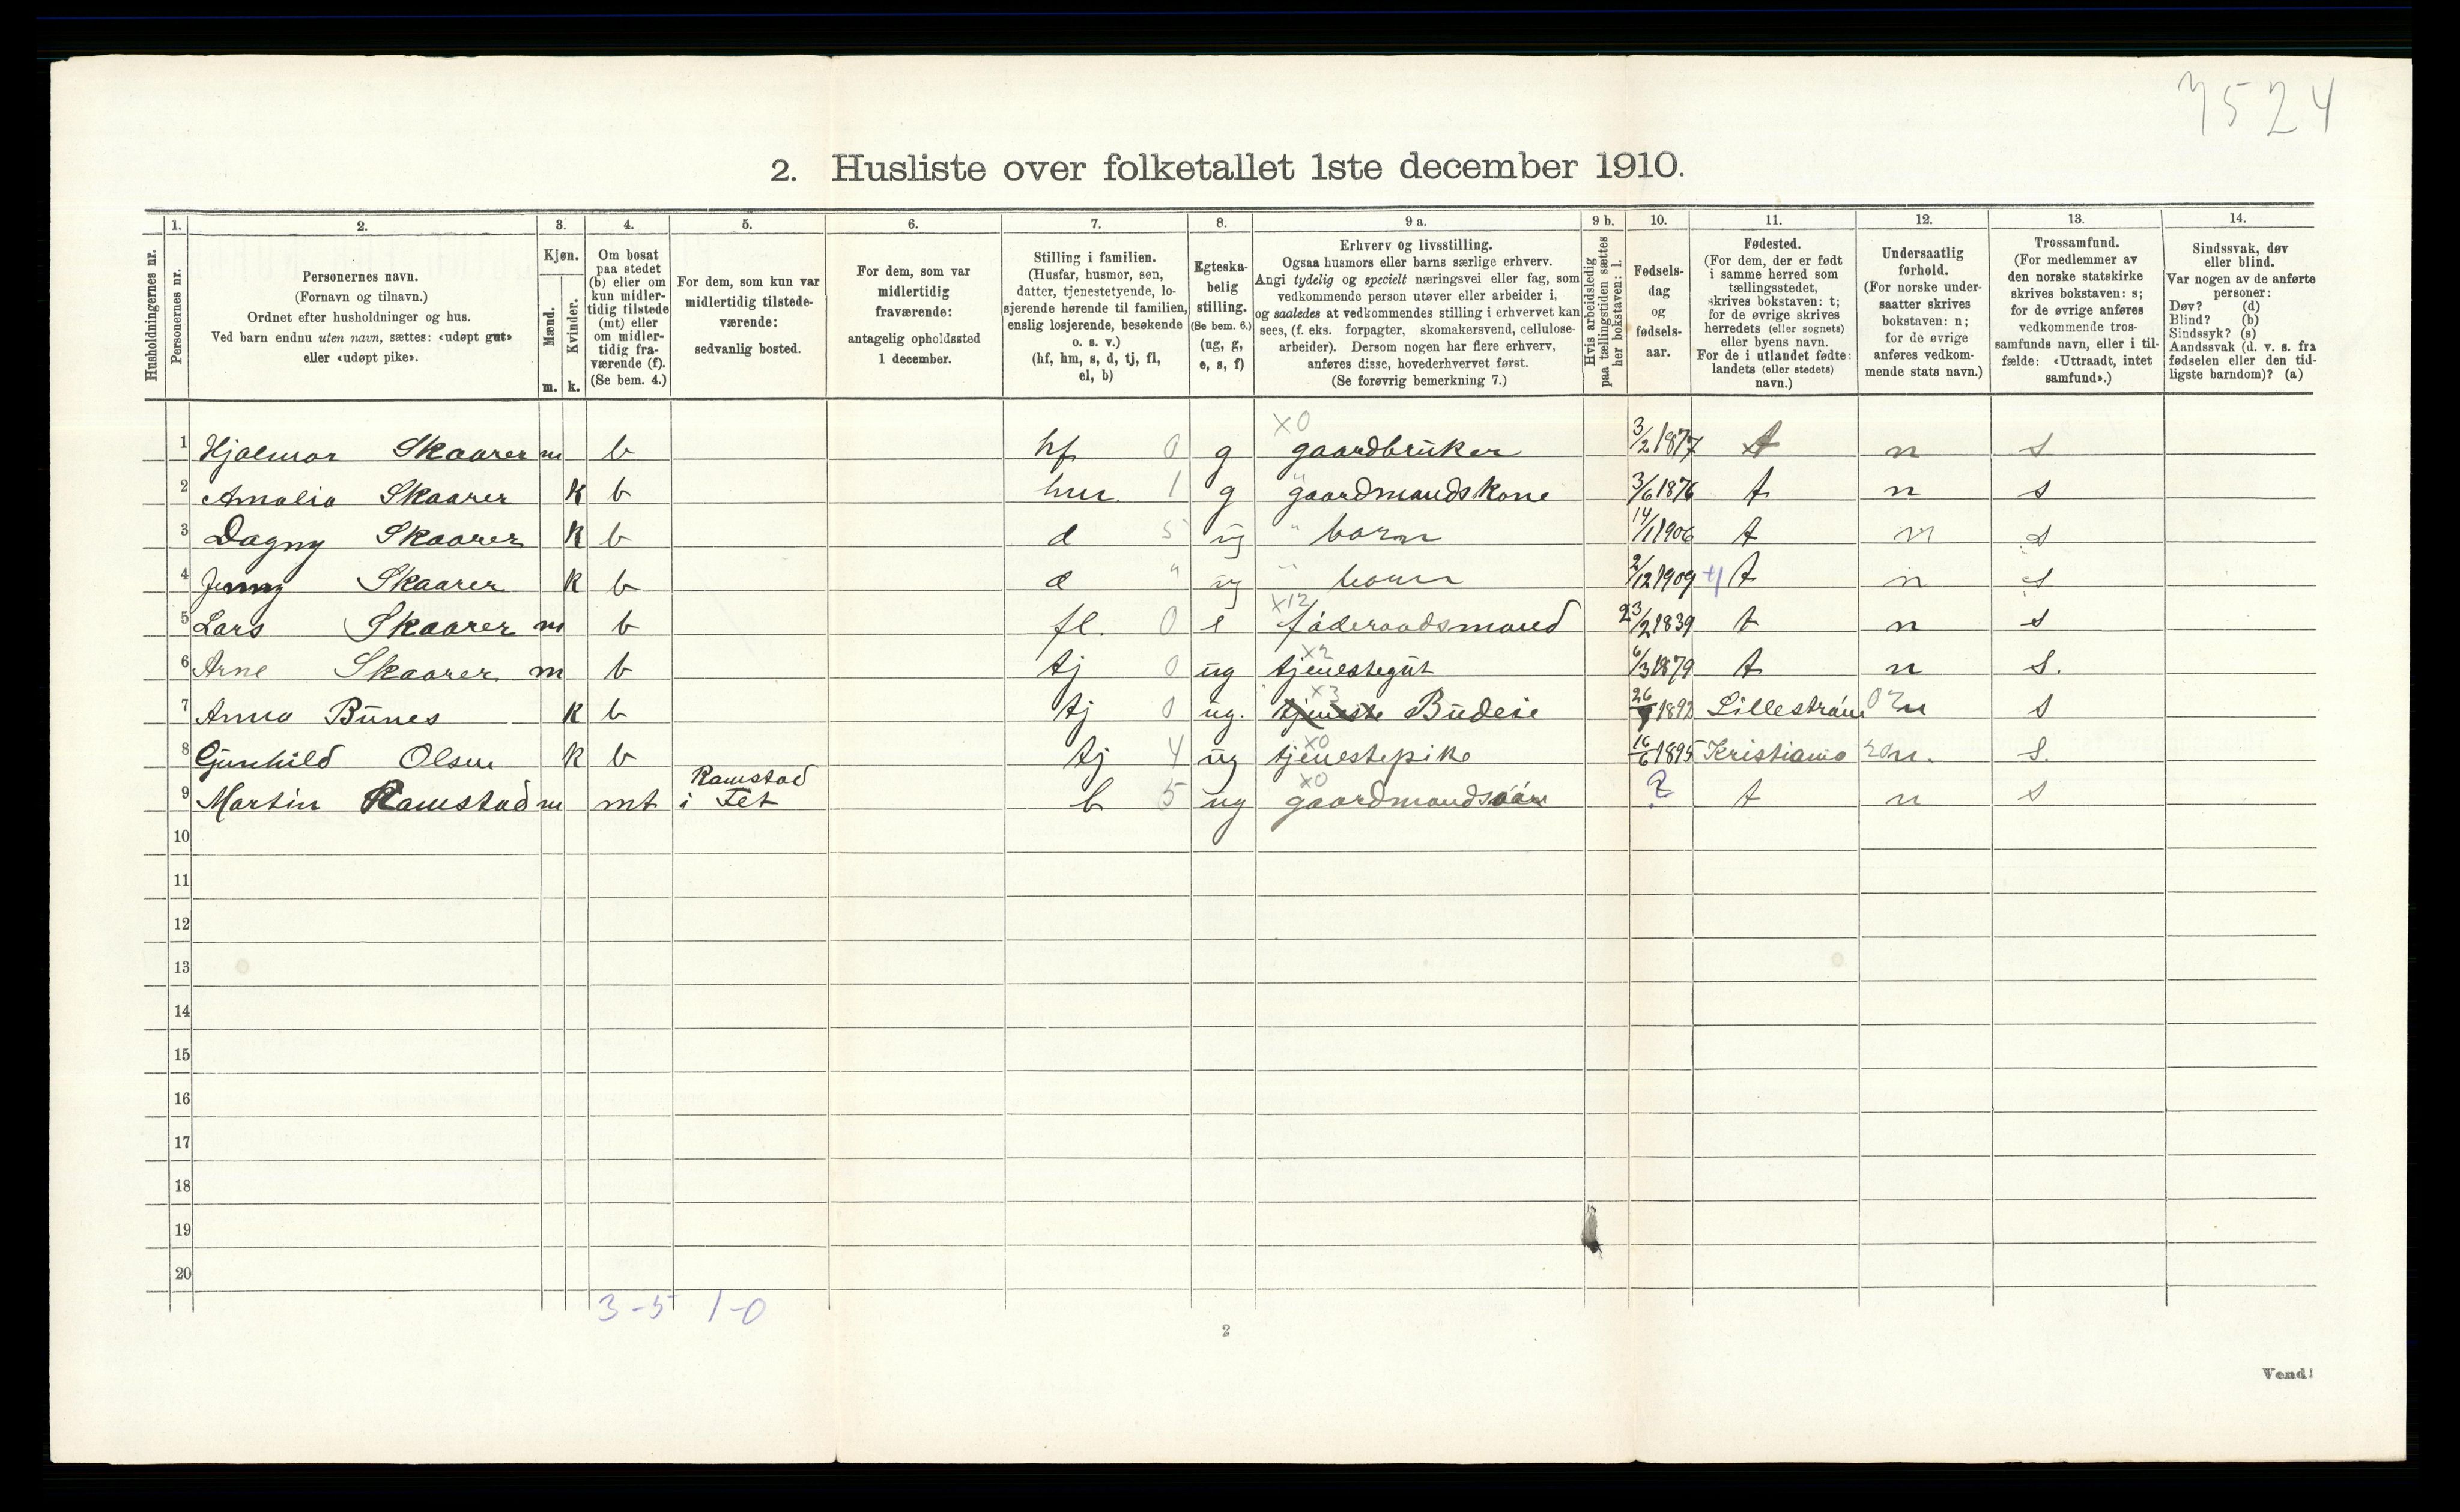 7524
2. Husliste over folketallet 1ste december 1910.
Husholdningernes nr.
1.
Personernes nr.
2.
Personernes navn.
(Fornavn og tilnavn.)
Ordnet efter husholdninger og hus.
Ved barn endnu uten navn, sættes: «udøpt gut»
eller «udøpt pike».
3.
Kjøn.
Mænd.
m.
Kvinder.
k.
4.
Om bosat
paa stedet
(b) eller om
kun midler-
tidig tilstede
(mt) eller
om midler-
tidig fra-
værende (f).
(Se bem. 4.)
5.
For dem, som kun var
midlertidig tilstede-
værende:
sedvanlig bosted.
6.
For dem, som var
midlertidig
fraværende:
antagelig opholdssted
1 december.
7.
Stilling i familien.
(Husfar, husmor, søn,
datter, tjenestetyende, lo-
sjerende hørende til familien,
enslig losjerende, besøkende
o. s. v.)
(hf, hm, s, d, tj, fl,
el, b)
8.
Egteska-
belig
stilling.
(Se bem. 6.)
(ug, g,
e, s, f)
9 a.
Erhverv og livsstilling.
Ogsaa husmors eller barns særlige erhverv.
Angi tydelig og specielt næringsvei eller fag, som
vedkommende person utøver eller arbeider i,
og saaledes at vedkommendes stilling i erhvervet kan
sees, (f. eks. forpagter, skomakersvend, cellulose-
arbeider). Dersom nogen har flere erhverv,
anføres disse, hovederhvervet først.
(Se forøvrig bemerkning 7.)
9 b.
Hvis arbeidsledig
paa tællingstiden sættes
her bokstaven: l.
10.
Fødsels-
dag
og
fødsels-
aar.
11.
Fødested.
(For dem, der er født
i samme herred som
tællingsstedet,
skrives bokstaven: t;
for de øvrige skrives
herredets (eller sognets)
eller byens navn.
For de i utlandet fødte:
landets (eller stedets)
navn.)
12.
Undersaatlig
forhold.
(For norske under-
saatter skrives
bokstaven: n;
for de øvrige
anføres vedkom-
mende stats navn.)
13.
Trossamfund.
(For medlemmer av
den norske statskirke
skrives bokstaven: s;
for de øvrige anføres
vedkommende tros-
samfunds navn, eller i til-
fælde: «Uttraadt, intet
samfund».)
14.
Sindssvak, døv
eller blind.
Var nogen av de anførte
personer:
Døv? (d)
Blind? (b)
Sindssyk? (s)
Aandssvak (d. v. s. fra
fødselen eller den tid-
ligste barndom)? (a)
1 Hjalmar Skaarer m b hf 0 g x0 gaardbruker 3/2 1877 t n s
2 Amalia Skaarer k b hm. 1 g gaardmandskone 3/6 1876 t n s
3 Dagny Skaarer k b d 5 ug " barn 14/1 1906 t n s
4 Jenny Skaarer k b d " ug " barn 2/12 1909 t n s
5 Lars Skaarer m b fl. 0 e x12 føderaadsmand 23/2 1839 t n s
6 Arne Skaarer m b tj 0 ug x2 tjenestegut 6/3 1879 t n s.
7 Anna Bunes k b tj 0 ug. x3 tjeneste Budeie 1892 Lillestrøm n s
8 Gunhild Olsen k b tj 4 ug x0 tjenestepike 16/6 1895 Kristiania n. s.
9 Martin Ramstad m mt Ramstad i Fet b 5 ug x0 gaardmandssøn ? t n s
10
11
12
13
14
15
16
17
18
19
20
3-5 1-0
2
Vend!